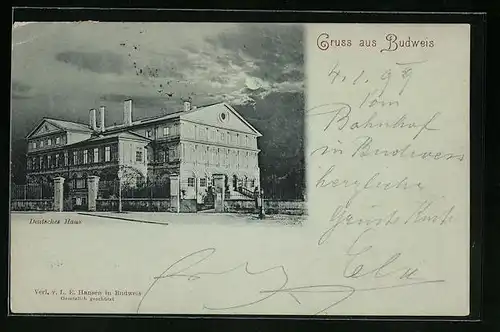 Gruss aus Budweis
4. 1. 99
Vom
Bahnhof
in Budweis
herzliche
Grüsse
Deutsches Haus
Verl. v. L. E. Hansen in Budweis
Gesetzlich geschützt